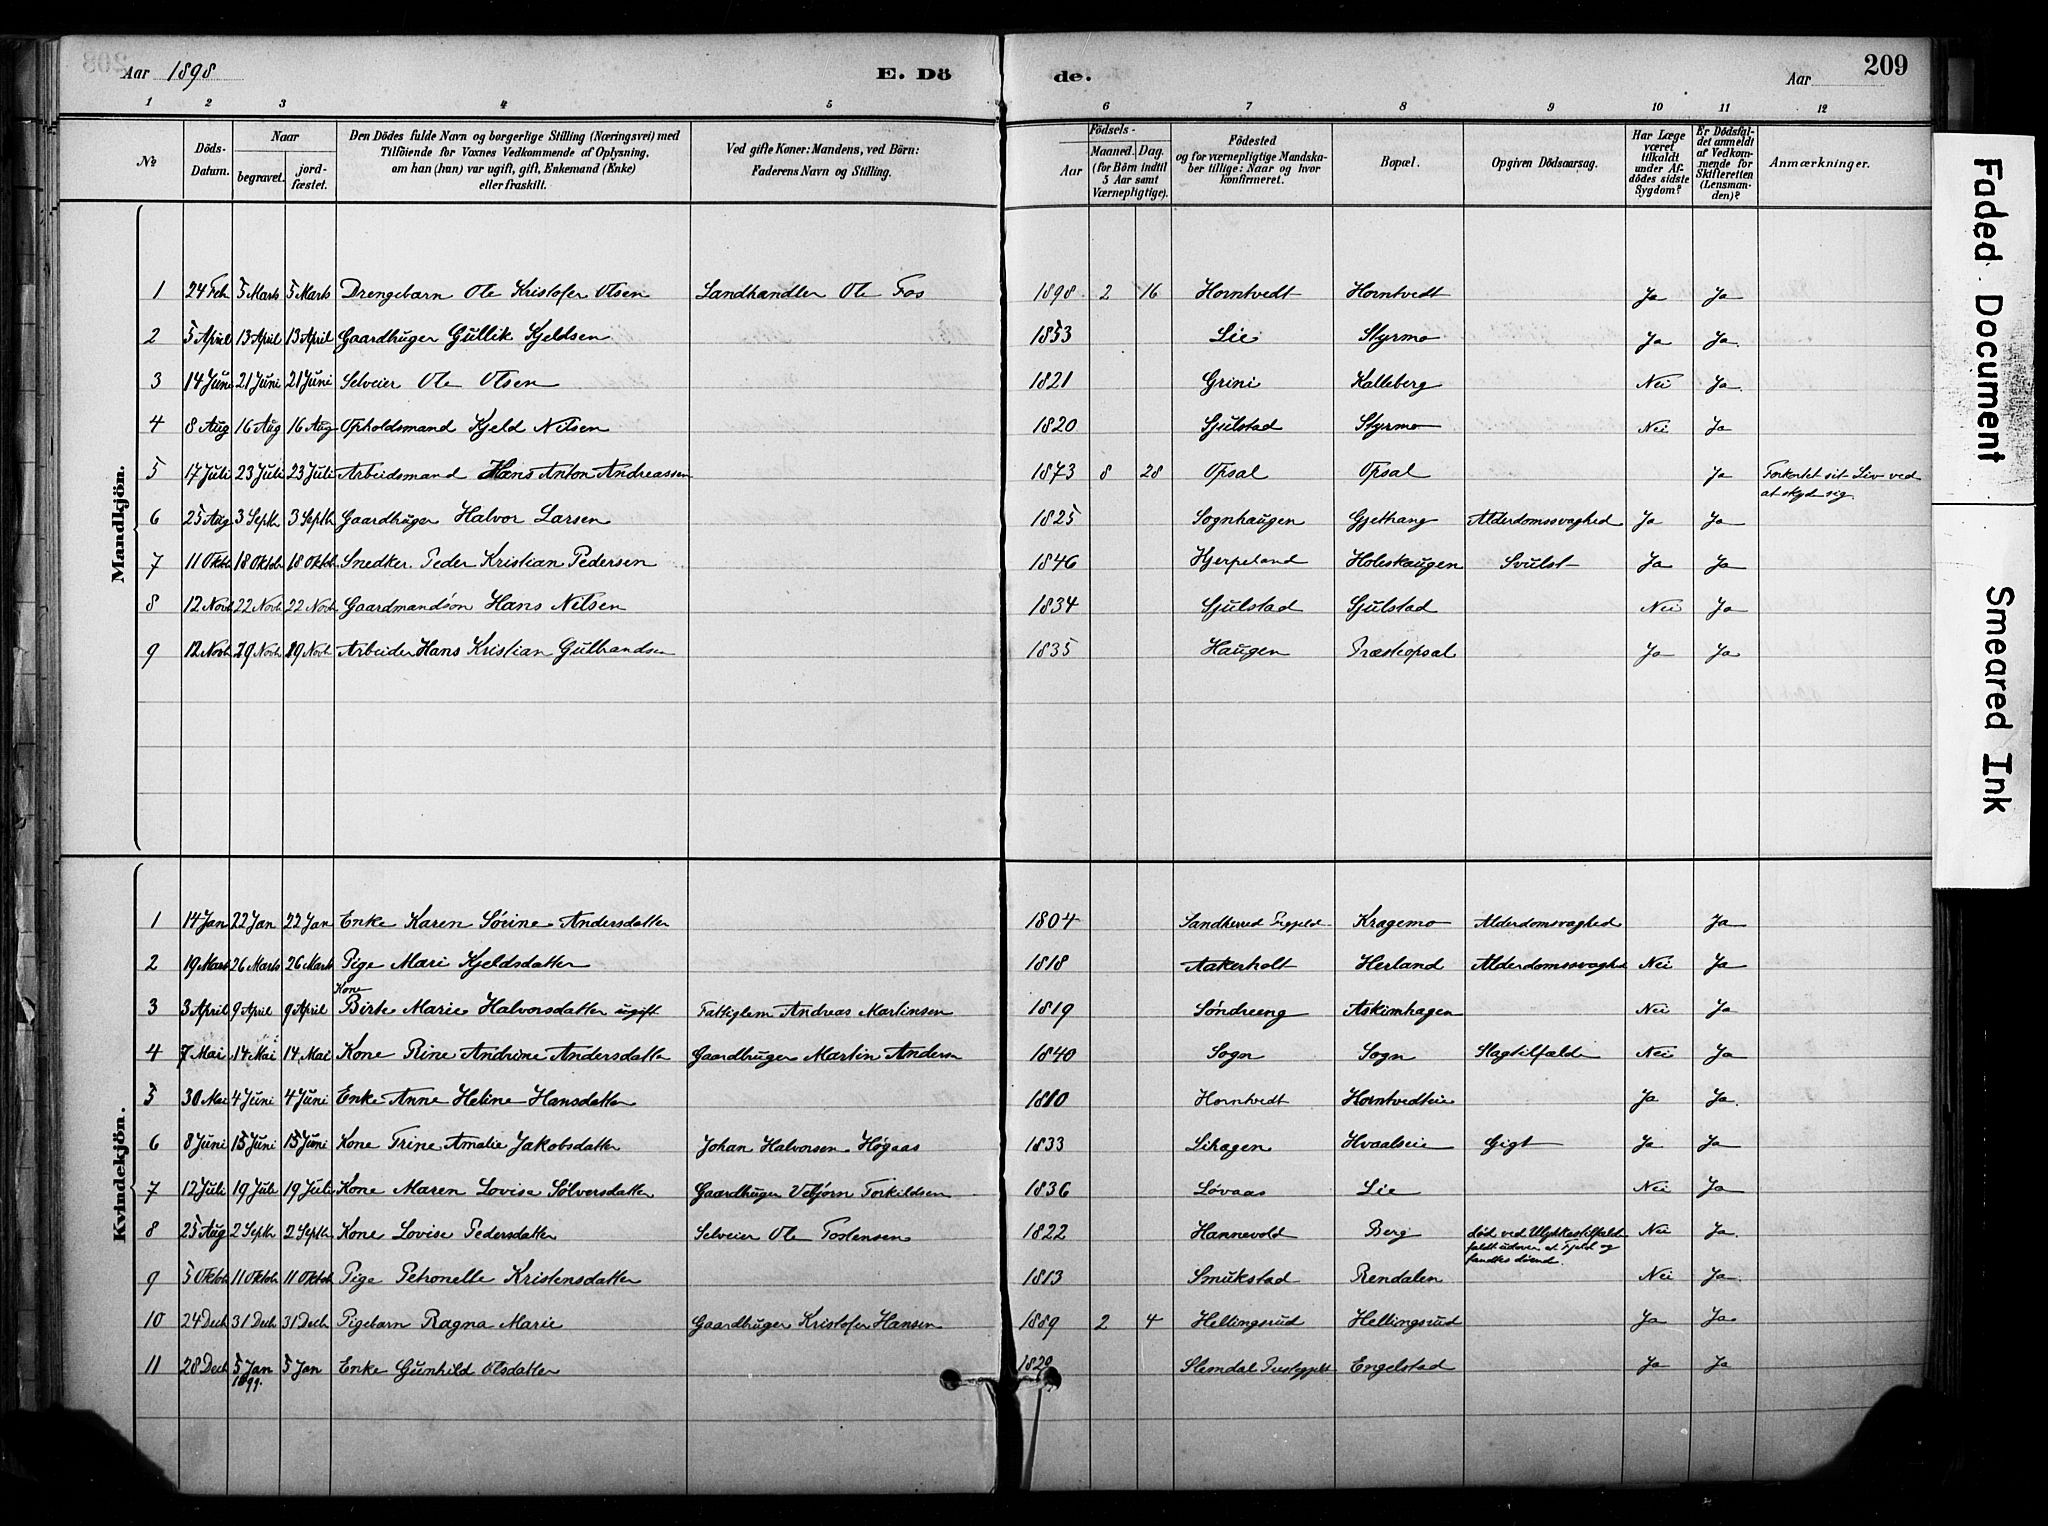 Aar 1898 E. Dö de. Aar 209
1 2 3 4 5 6 7 8 9 10 11 12
No Döds-Datum. Naar begravet. jord-fæstet. Den Dödes fulde Navn og borgerlige Stilling (Næringsvei) med Tilföiende for Voxnes Vedkommende af Oplysning, om han (hun) var ugift, gift, Enkemand (Enke) eller fraskilt. Ved gifte Koner: Mandens, ved Börn: Faderens Navn og Stilling. Födsels- Aar Maaned. Dag. (for Börn indtil 5 Aar samt Værnepligtige). Födested og for værnepligtige Mandskaber tillige: Naar og hvor konfirmeret. Bopæl. Opgiven Dödsaarsag. Har Læge været tilkaldt under Afdödes sidste Sygdom? Er Dödsfaldet anmeldt af Vedkommende for Skifteretten (Lensmanden)? Anmærkninger.
Mandkjön.
1 24 Feb 5 Marts 5 Marts Drengebarn Ole Kristofer Olsen Landhandler Ole Fos 1898 2 16 Horntvedt Horntvedt Ja Ja
2 5 April 13 April 13 April Gaardbruger Gullik Kjeldsen 1853 Lie Styrmo Ja Ja.
3 14 Juni 21 Juni 21 Juni Selveier Ole Olsen 1821 Grini Kalleberg Nei Ja.
4 8 Aug 16 Aug 16 Aug Opholdsmand Kjeld Nilsen 1820 Sjulstad Styrmo Nei Ja
5 17 Juli 23 Juli 23 Juli Arbeidsmand Hans Anton Andreassen 1873 8 28 Opsal Opsal Ja Forkortet sit Liv ved
at skyde sig.
6 25 Aug 3 Septb 3 Septb Gaardbruger Halvor Larsen 1825 Sognhaugen Gjethaug Alderdomssvaghed Ja Ja
7 11 Oktb 18 Oktob 18 Oktob Snedker Peder Kristian Pedersen 1846 Hjerpeland Holeshaugen Svulst Ja Ja
8 12 Novb 22 Novb 22 Novb Gaardmandsøn Hans Nilsen 1834 Sjulstad Sjulstad Nei Ja
9 12 Novb 29 Novb 29 Novb Arbeider Hans Kristian Gulbrandsen 1835 Haugen Præsteopsal Ja Ja
Kvindekjön.
1 14 Jan 22 Jan 22 Jan Enke Karen Sørine Andersdatter 1804 Sandherred Kragemo Alderdomsvaghed Ja
2 19 Marts 26 Marts 26 Marts Pige Mari Kjeldsdatter 1818 Aakerholt Herland Alderdomssvaghd Nei Ja
Kone
3 3 April 9 April 9 April Birte Marie Halvorsdatter ugift Fattiglem Andreas Martinsen 1819 Søndreeng Askimhagen Nei Ja
4 7 Mai 14 Mai 14 Mai Kone Rine Andrine Andersdatter Gaardbruger Martin Andersn 1840 Sogn Sogn Slagtilfælde Nei Ja
5 30 Mai 4 Juni 4 Juni Enke Anne Heline Hansdatter 1810 Horntvedt Horntvedteie Ja Ja.
6 8 Juni 15 Juni 15 Juni Kone Trine Amalie Jakobsdatter Johan Halvorsen Høgaas 1833 Lihagen Hvaalseie Gigt Ja Ja
7 12 Juli 19 Juli 19 Juli Kone Maren Lovise Sølversdatter Gaardbruger Vebjørn Torkildsen 1836 Løvaas Lie Nei Ja
8 25 Aug 2 Septb 2 Septb Kone Lovise Pedersdatter Selveier Ole Tostensen 1822 Hannevold Berg død ved Ulykkestilfælde Nei Ja.
faldt udover et Fjeld og
fandtes døende.
9 5 Oktob 11 Oktob 11 Oktob Pige Petronelle Kristensdatter 1813 Smukstad Rendalen Nei Ja.
10 24 Decb 31 Decb 31 Decb Pigebarn Ragna Marie Gaardbruger Kristofer Hansen 1889 2 4 Hellingsrud Hellingsrud Ja Ja
11 28 Decb 5 Jan 5 Jan Enke Gunhild Olsdatter 1829 Slemdal Engelstad Ja Ja
1899.
Faded Document
Smeared Ink